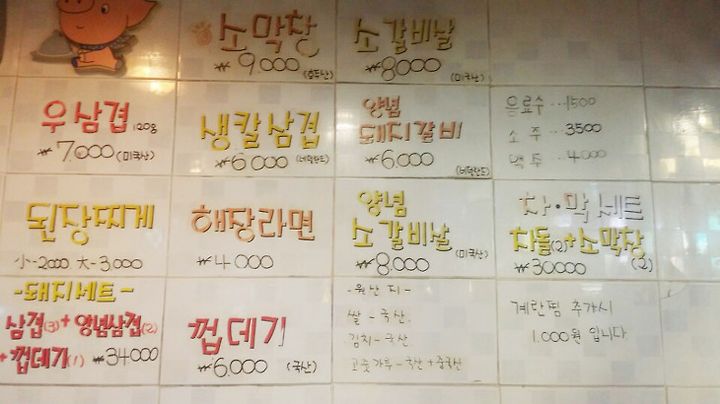 소막창
₩9.000 (호주산)
소갈비살
₩8000 (미국산)
우삼겹 120g
₩7.000 (미국산)
생칼삼겹
₩6000 (네덜란드)
양념
돼지갈비
₩6.000
(네덜란드)
음료수...1500
소주...3500
맥주...4000
된장찌게
小-2000 大-3.000
해장라면
₩4000
양념
소갈비살
₩8.000 (미국산)
차·막 세트
차돌(2)+소막창
(2)
₩30000
-돼지세트-
삼겹(3)+양념삼겹(2)
+껍데기(1) ₩34000
껍데기
₩6.000 (국산)
-원산지-
쌀-국산
김치-국산
고춧가루-국산+중국산
계란찜 추가시
1.000원 입니다